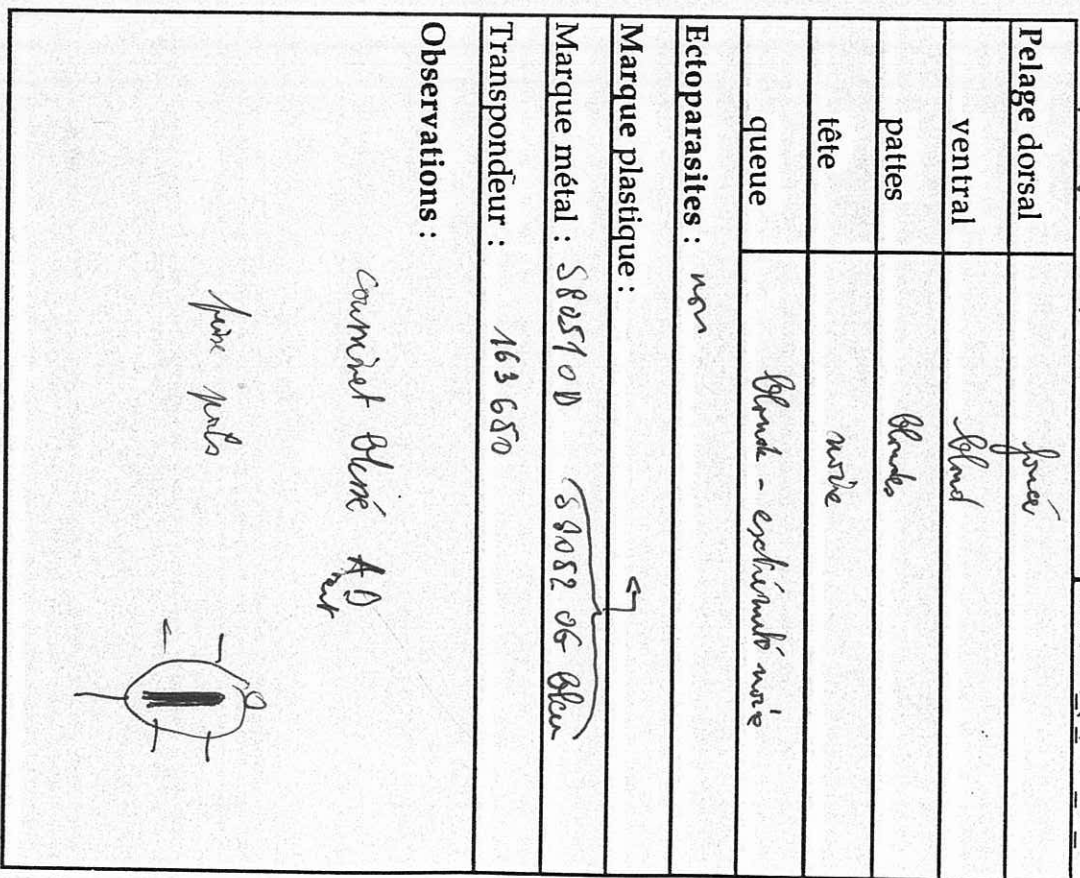 Pelage dorsal foncé
ventral blond
pattes blondes
tête noire
queue blonde - extrémité noire
Ectoparasites : non
Marque plastique :
Marque métal : S8051 OD S8052 OG bleu
Transpondeur : 163 680
Observations :
coussinet blessé AD
prise poils